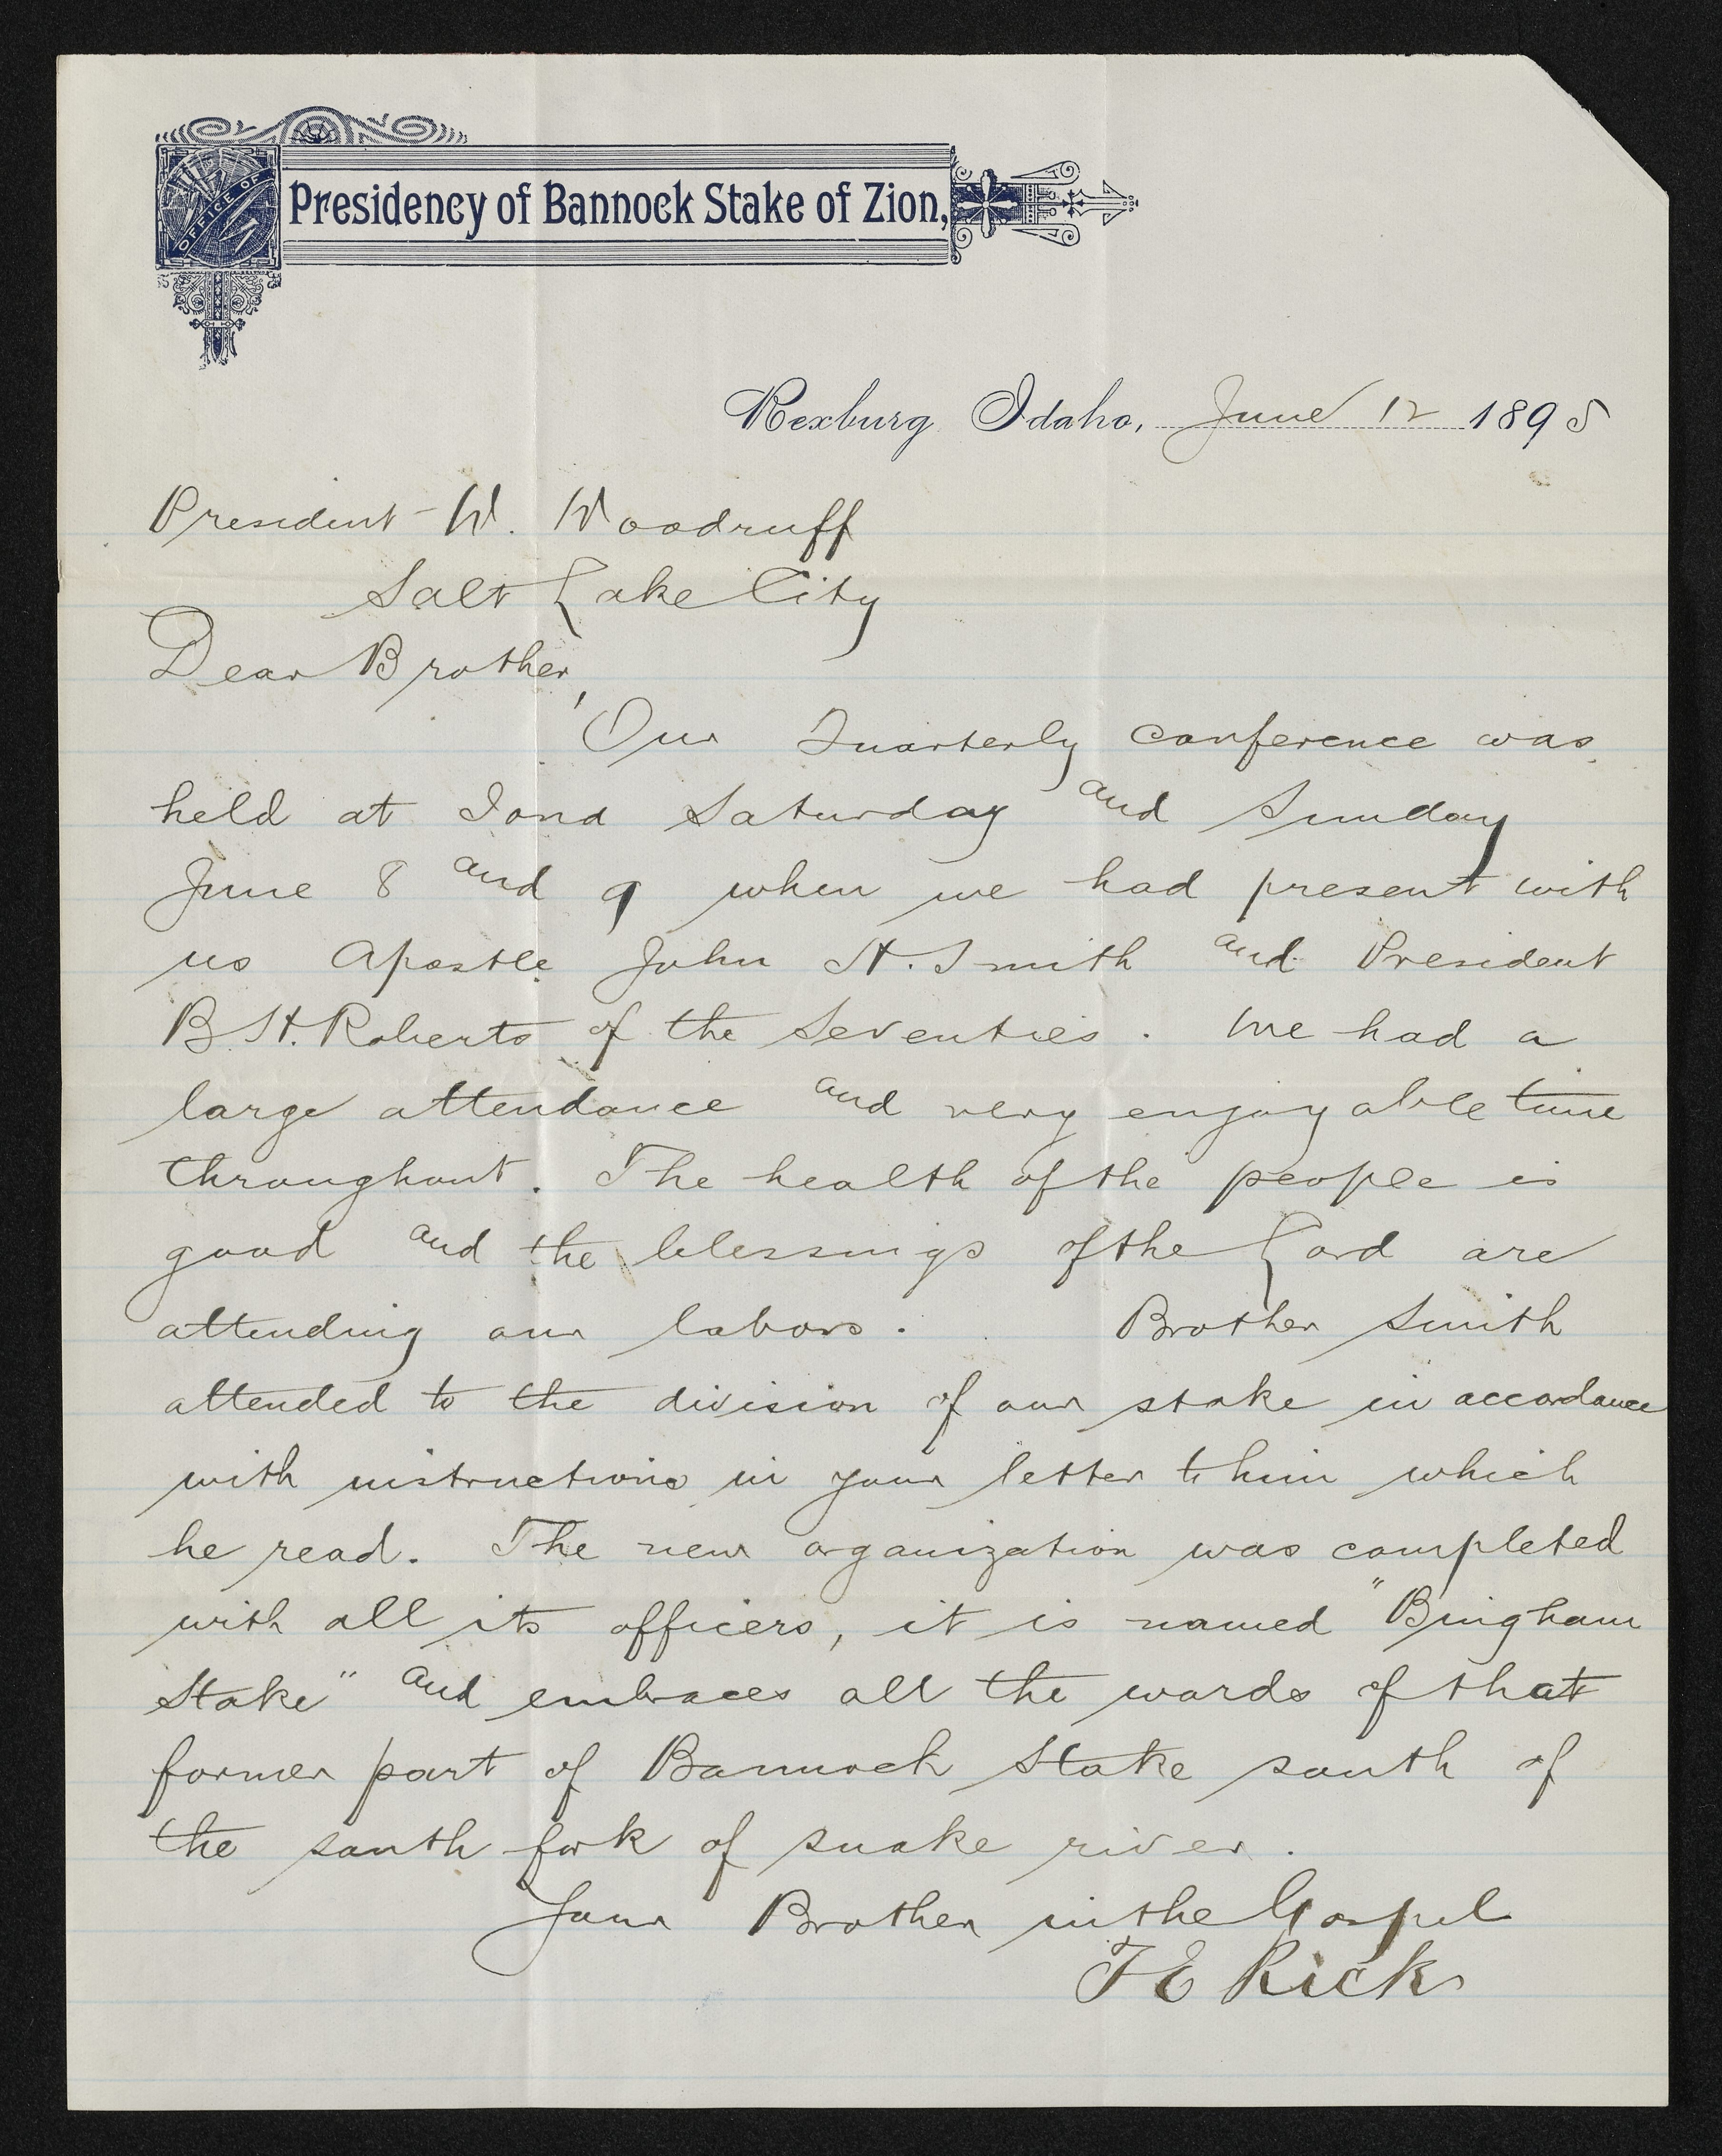 OFFICE OF
Presidency of Bannock Stake of Zion,
Rexburg Idaho, June 12 1895
President W. Woodruff
Salt Lake City
Dear Brother,
Our Quarterly conference was
held at Iona Saturday and Sunday
June 8 and 9 when we had present with
us Apostle John H. Smith and President
B. H. Roberts of the Seventies. We had a
large attendance and very enjoyable time
throughout. The health of the people is
good and the blessings of the Lord are
attending our labors. Brother Smith
attended to the division of our stake in accordance
with instructions in your letter to him which
he read. The new organization was completed
with all its officers, it is named "Bingham
Stake" and embraces all the wards of that
former part of Bannock Stake south of
the south fork of snake river.
Your Brother in the Gospel
T E Ricks